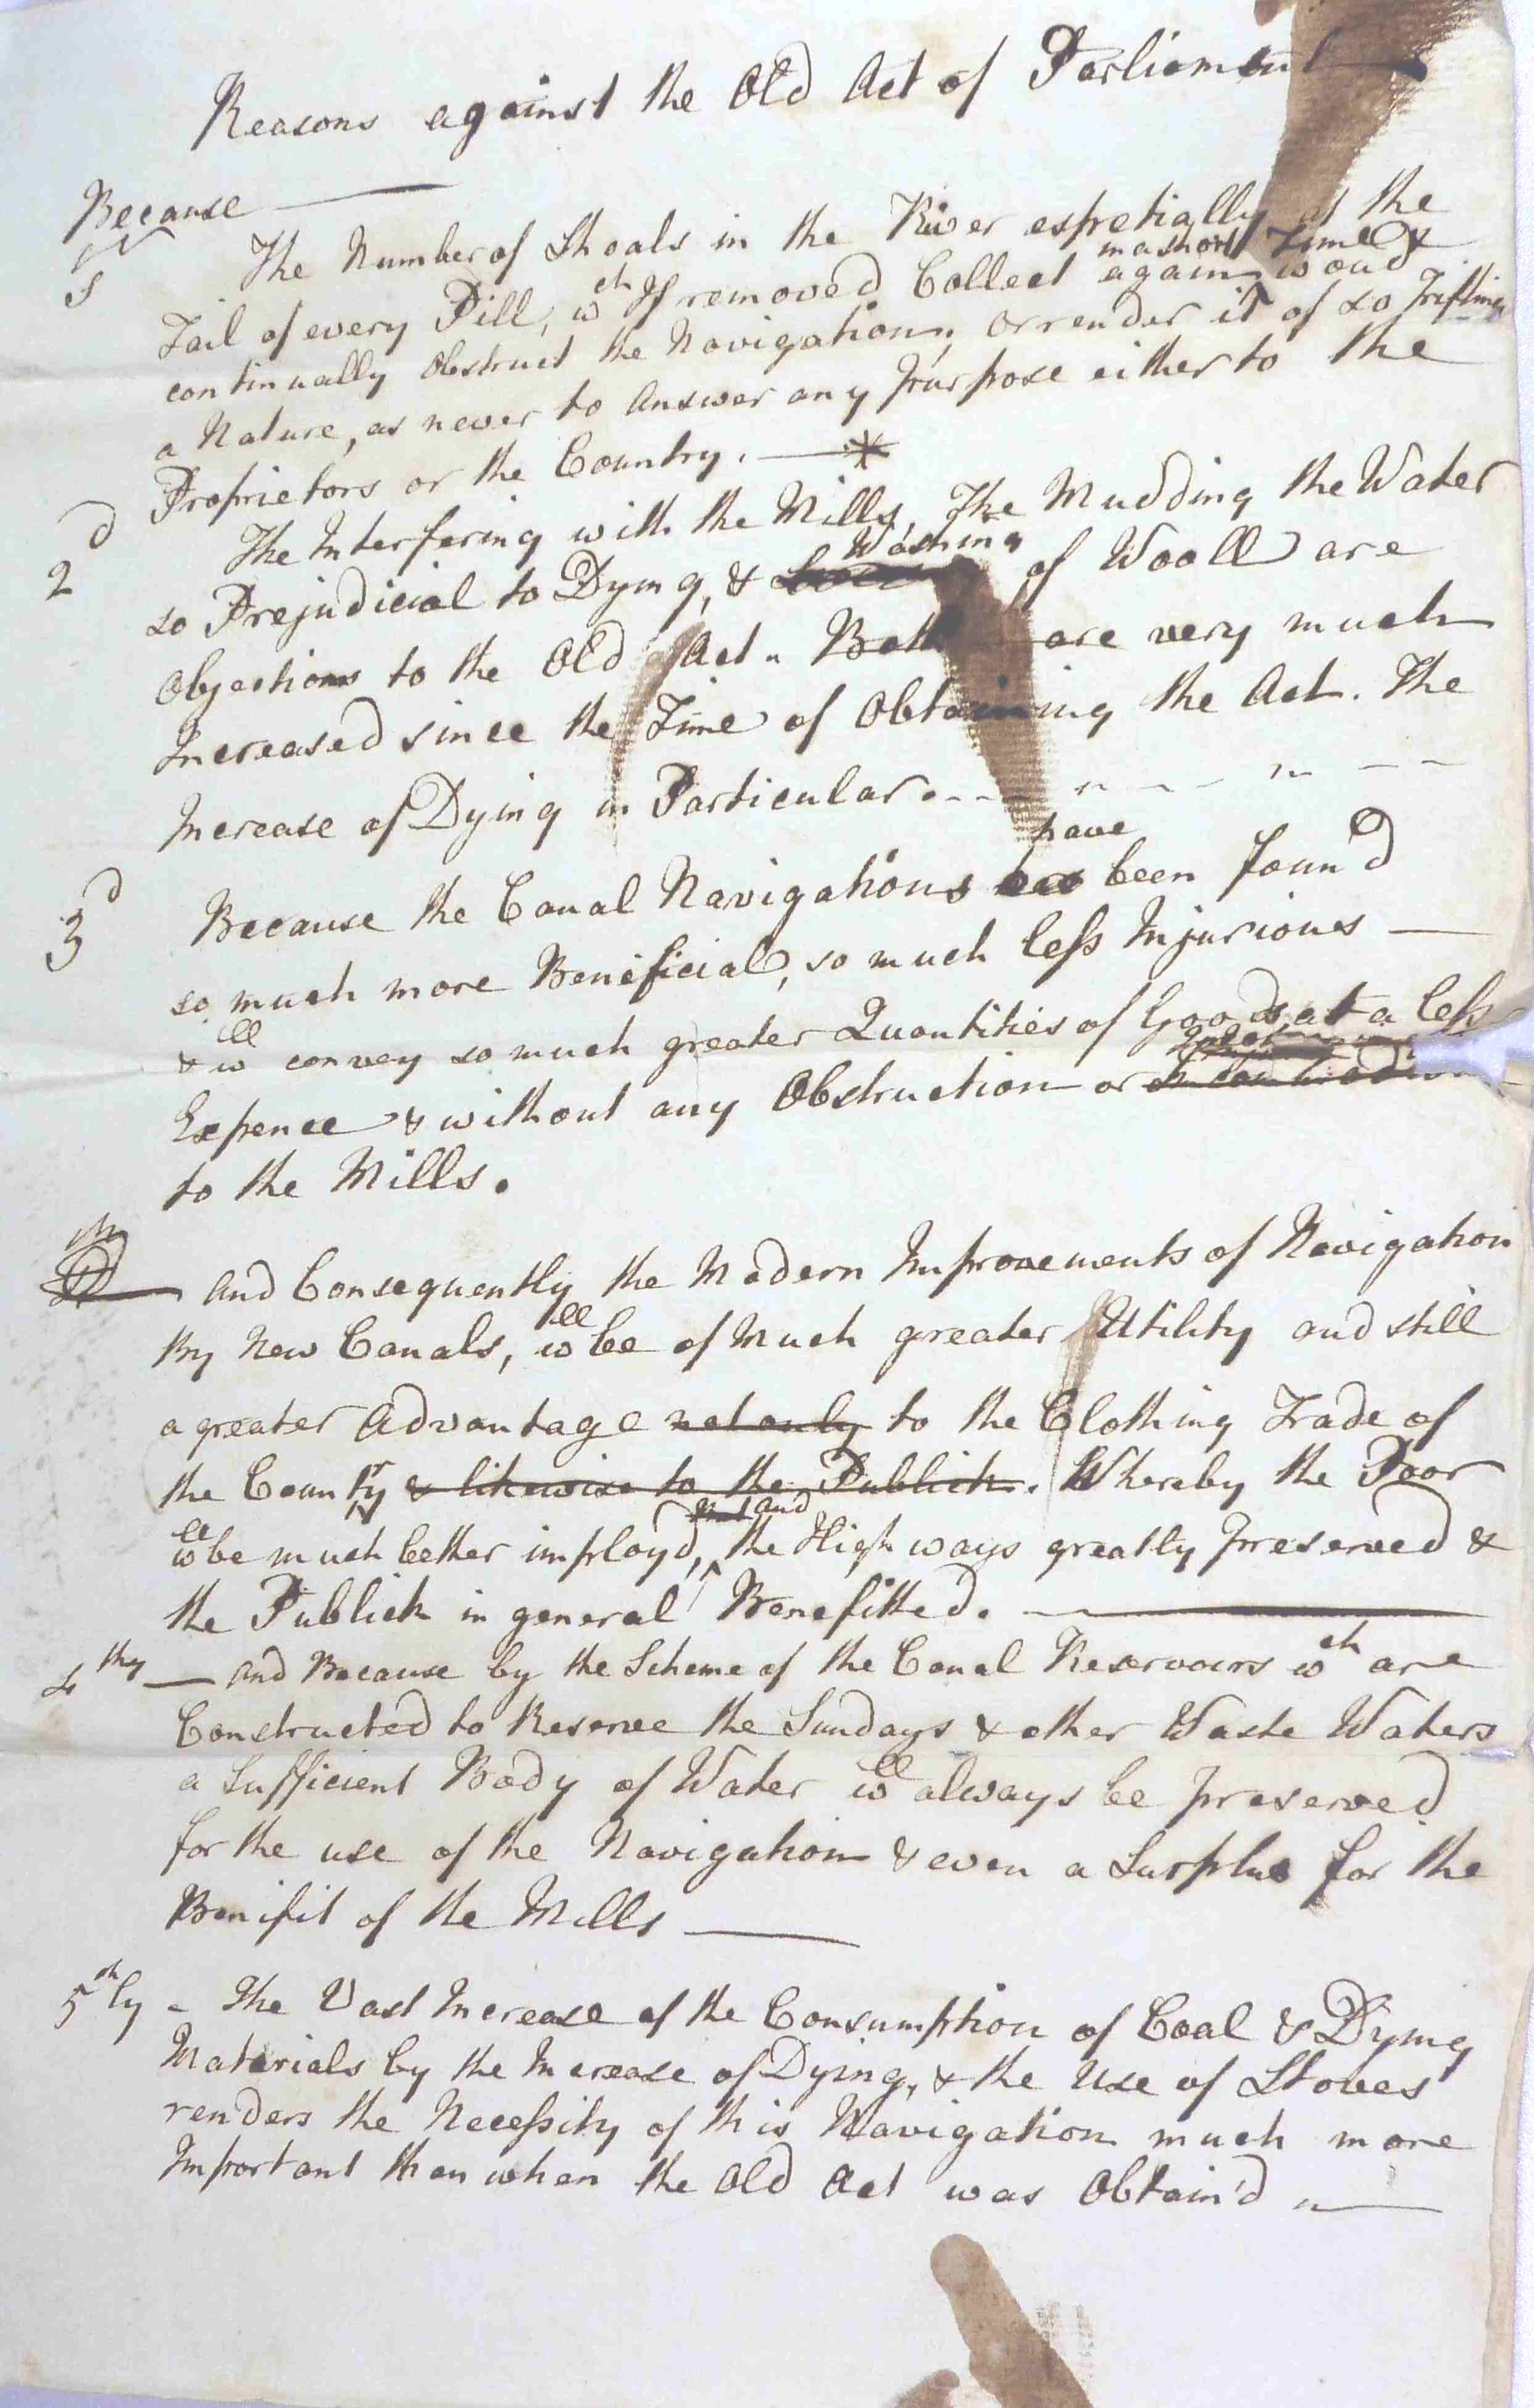 Reasons against the Old Act of Parliament
Because
1st The Number of Shoals in the River espetially at the
in a short Time &
Tail of every Pill, wch If removed Collect again woud
continually Obstruct the Navigation, or render it of so Trifling
a Nature, as never to Answer any Purpose either to the
Proprietors or the Country.
2d The Interfering with the Mills, The Mudding the Water
Washing
so Prejudicial to Dying, & of Wooll are
Objections to the Old Act. Both are very much
Increased since the Time of Obtaining the Act. The
Increase of Dying in Particular.
have
3d Because the Canal Navigations been found
so much more Beneficial, so much less Injurious
& will convey so much greater Quantities of Goods, at a less
Expence & without any Obstruction or
to the Mills.
and Consequently the Modern Improvements of Navigation
By New Canals, will be of Much greater Utility and still
a greater Advantage not only to the Clothing Trade of
the County & likewise to the Publick. Whereby the Poor
But and
will be much better imployd, the High ways greatly Preserved &
the Publick in general Benefitted.
4thy and Because by the Scheme of the Canal Reservoirs wch are
Constructed to Reserve the Sundays & other Waste Waters
a Sufficient Body of Water will always be preserved
for the use of the Navigation & even a Surplus for the
Benifit of the Mills
5thly - The Vast Increase of the Consumption of Coal & Dying
Materials by the Increase of Dying, & the Use of Stoves
renders the Necessity of this Navigation much more
Important than when the Old Act was Obtain'd